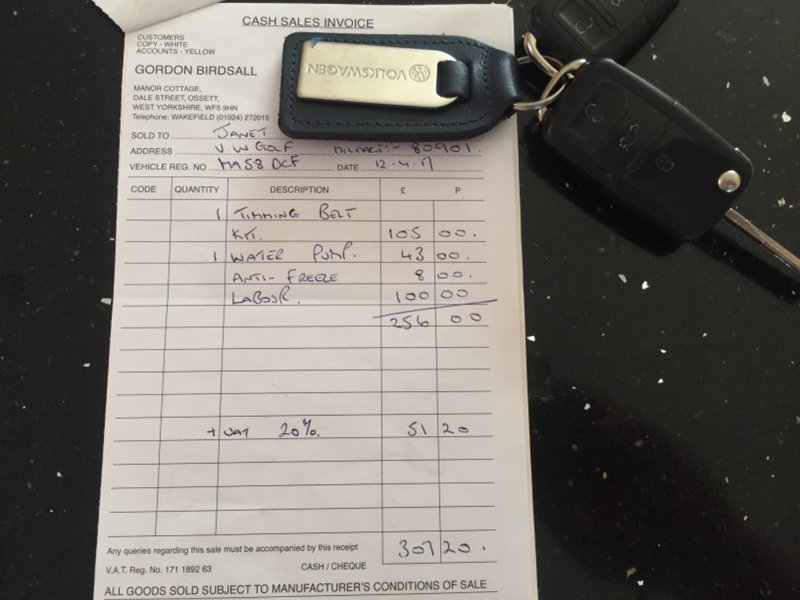 CASH SALES INVOICE
CUSTOMERS
COPY - WHITE
ACCOUNTS - YELLOW
GORDON BIRDSALL
MANOR COTTAGE,
DALE STREET, OSSETT,
WEST YORKSHIRE, WF5 9HN
Telephone: WAKEFIELD (01924) 272015
VOLKSWAGEN
SOLD TO JANET
ADDRESS V.W GOLF MILEAGE:- 80901.
VEHICLE REG. NO MA58 DCF DATE 12-4-17
CODE QUANTITY DESCRIPTION £ P
1 TIMMING BELT
KIT. 105 00.
1 WATER PUMP. 43 00.
ANTI-FREEZE 8 00.
LABOUR. 100 00
256 00
+ VAT 20%. 51 20
307 20.
Any queries regarding this sale must be accompanied by this receipt
V.A.T. Reg. No. 171 1892 63 CASH / CHEQUE
ALL GOODS SOLD SUBJECT TO MANUFACTURER'S CONDITIONS OF SALE